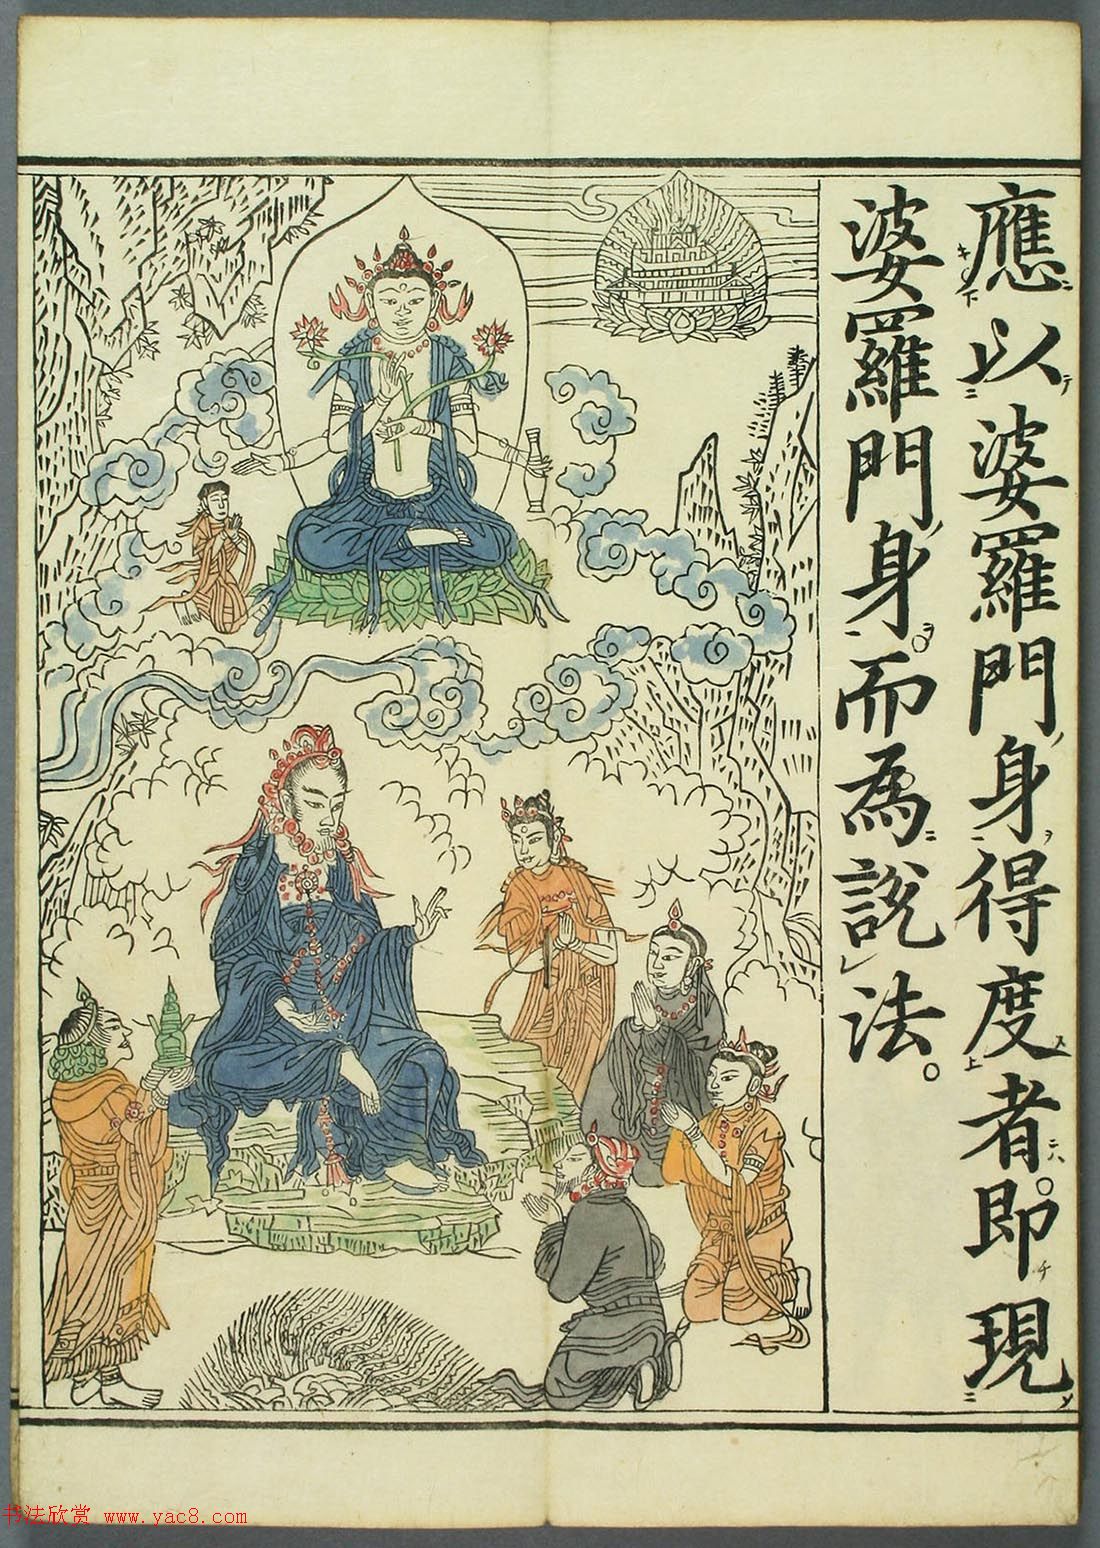 應以婆羅門身得度者。即現
婆羅門身。而為說法。
书法欣赏 www.yac8.com